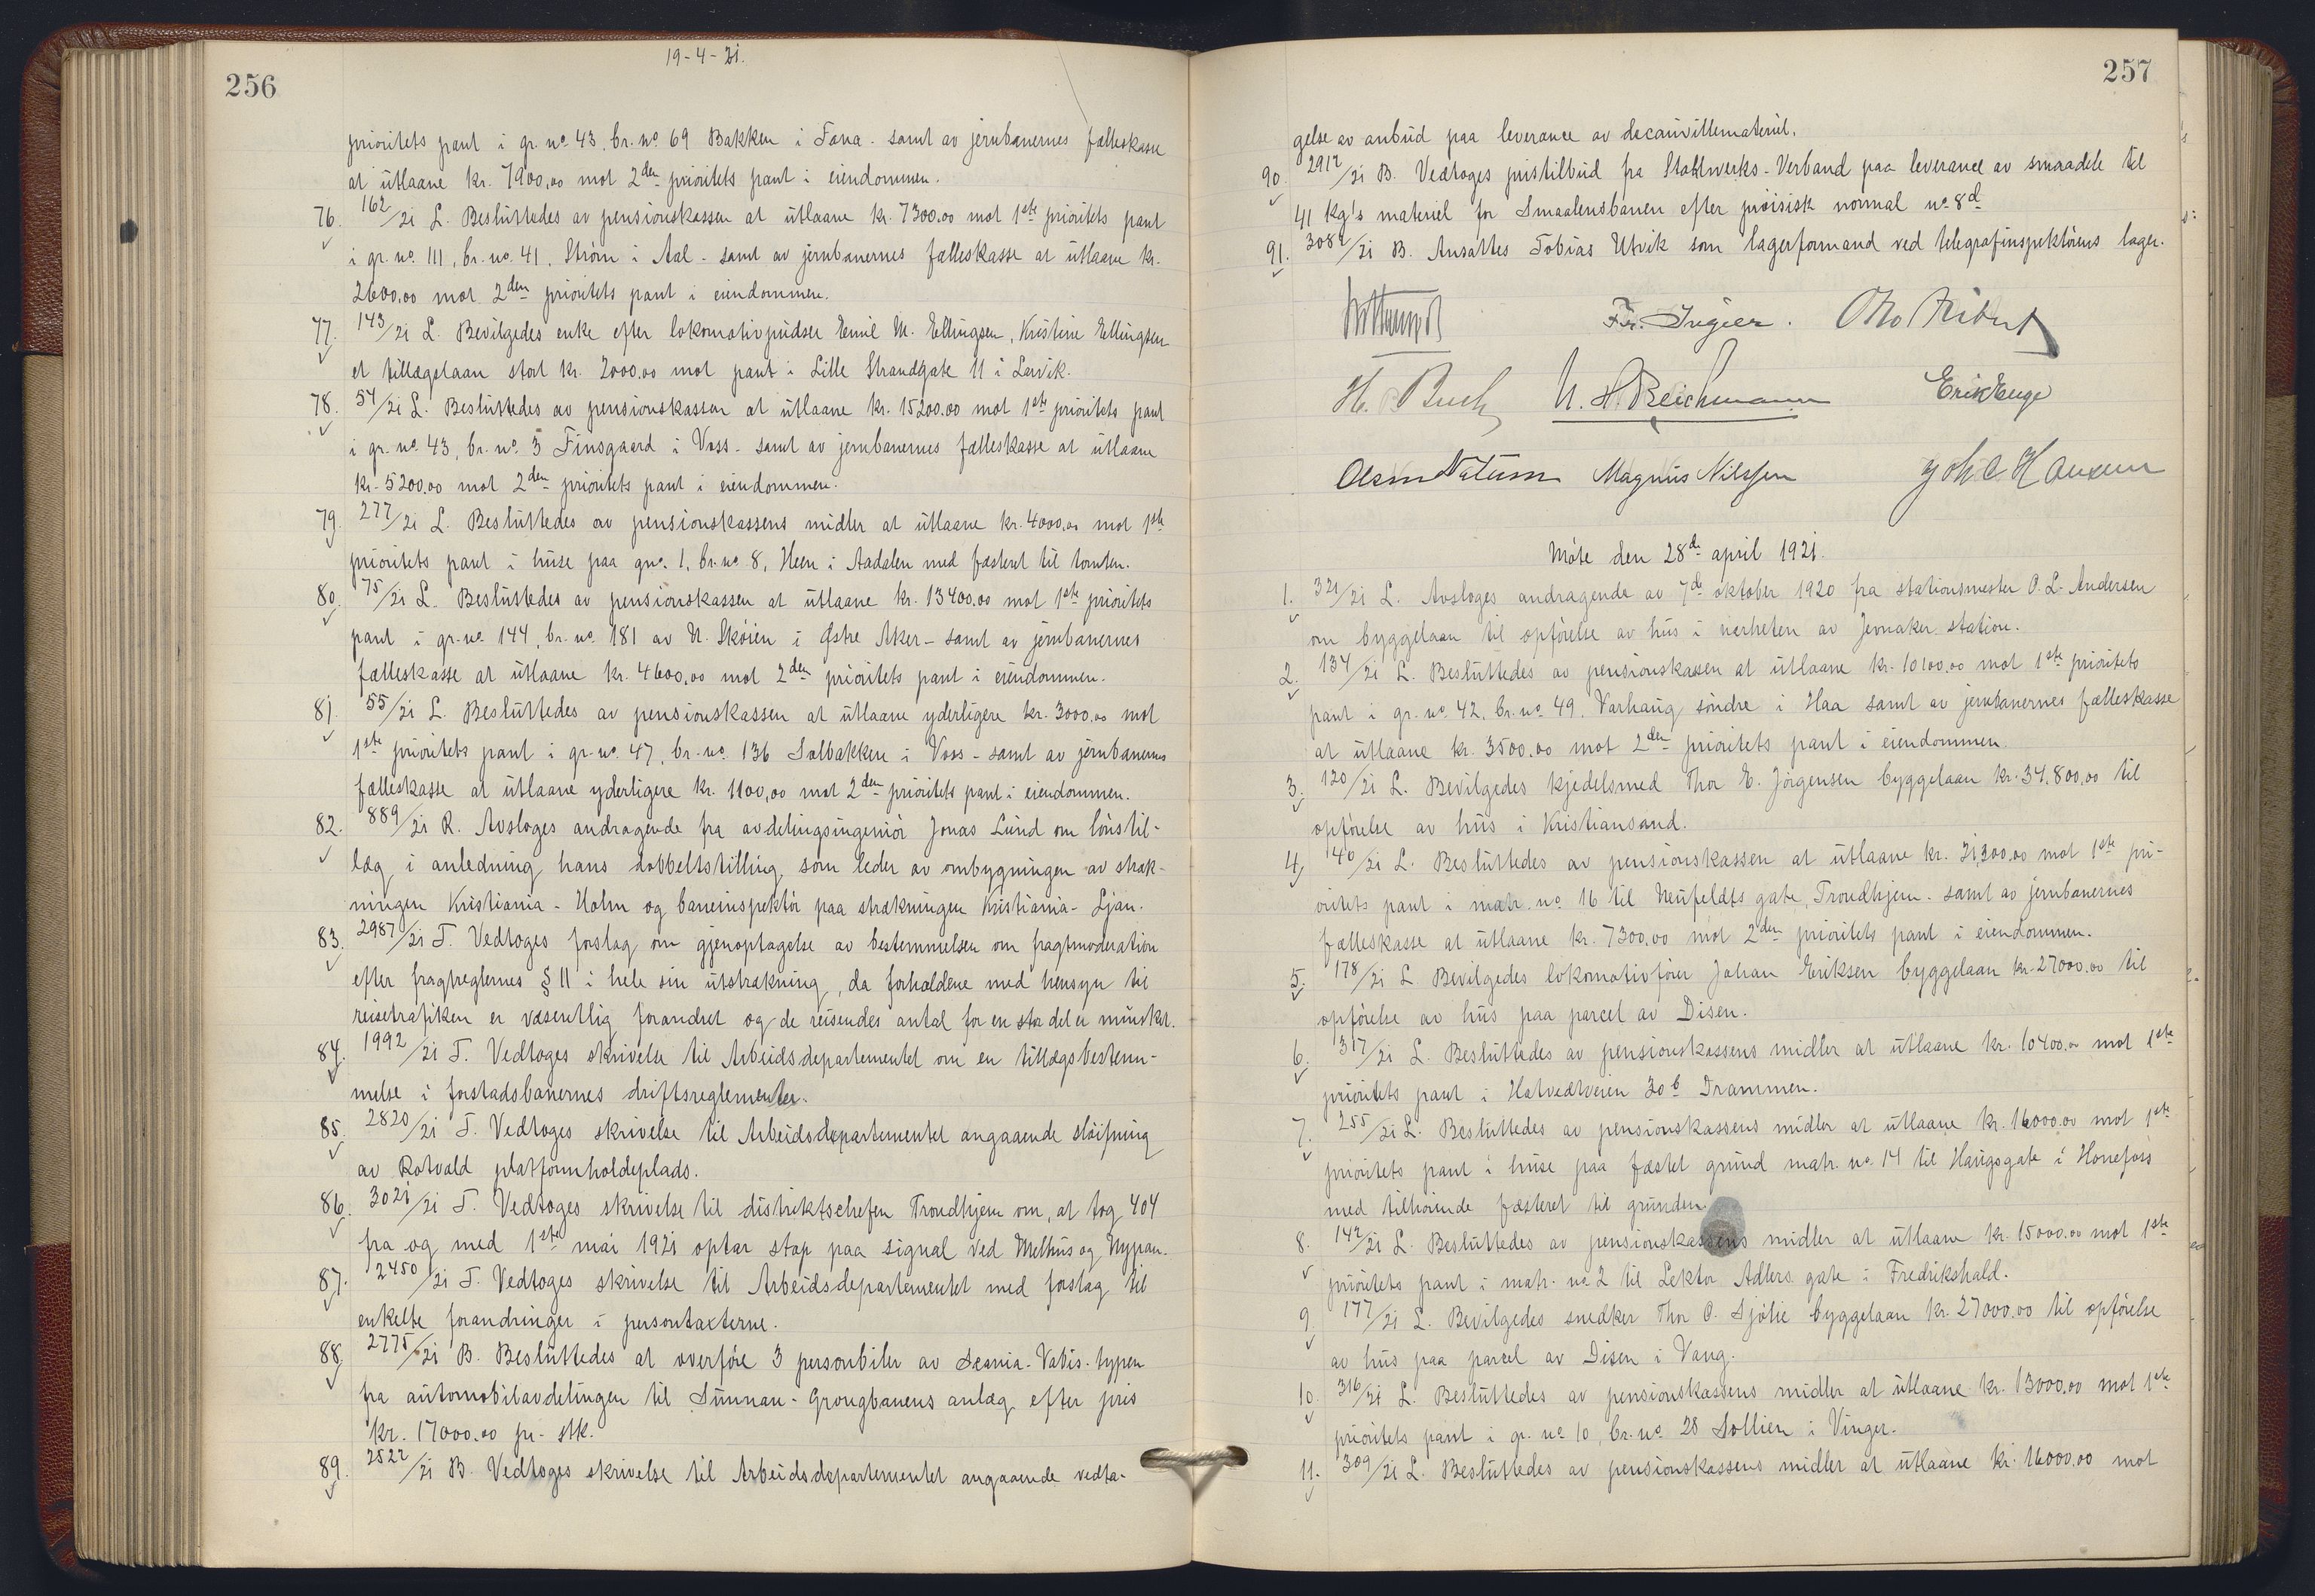 256
19-4-21.
prioritets pant i gr. no. 43, br. no 69 Bakken i Fana - samt av jernbanernes fælleskasse
at utlaane kr. 7900,00 mot 2den prioritets pant i eiendommen.
76. 162/21 L. Besluttedes av pensionskassen at utlaane kr. 7300.00 mot 1ste prioritets pant
i gr. no. 111, br. no. 41, Strøm i Aal - samt av jernbanernes fælleskasse at utlaane kr.
2600,00 mot 2den prioritets pant i eiendommen.
77. 143/21 L. Bevilgedes enke efter lokomotivpudser Emil M. Ellingsen, Kristine Ellingsen
et tillægslaan stort kr. 2000.00 mot pant i Lille Strandgate 11 i Larvik.
78. 54/21 L. Besluttedes av pensionskassen at utlaane kr. 15200.00 mot 1ste prioritets pant
i gr. no. 43, br. no. 3 Finsgaard i Voss - samt av jernbanernes fælleskasse at utlaane
kr. 5200.00 mot 2den prioritets pant i eiendommen.
79. 277/21 L. Besluttedes av pensionskassens midler at utlaane kr. 4000,00 mot 1ste
prioritets pant i huse paa gno. 1, br. no 8, Heen i Aadalen med fæsteret til tomten.
80. 75/21 L. Besluttedes av pensionskassen at utlaane kr. 13400.00 mot 1ste prioritets
pant i gr. no 144, br. no. 181 av N. Skøien i Østre Aker - samt av jernbanernes
fælleskasse at utlaane kr. 4600,00 mot 2den prioritets pant i eiendommen.
81. 55/21 L. Besluttedes av pensionskassen at utlaane yderligere kr. 3000.00 mot
1ste prioritets pant i gr. no. 47, br. no. 136 Solbakken i Voss - samt av jernbanernes
fælleskasse at utlaane yderligere kr. 1100,00 mot 2den prioritets pant i eiendommen.
82. 889/21 R. Avsloges andragende fra avdelingsingeniør Jonas Lund om lønstil-
læg i anledning hans dobbeltstilling som leder av ombygningen av stræk-
ningen Kristiania - Holm og baneinspektør paa strækningen Kristiania - Ljan.
83. 2987/21 T. Vedtoges forslag om gjenoptagelse av bestemmelsen om fragtmoderation
efter fragtreglernes § 11 i hele sin utstrækning, da forholdene med hensyn til
reisetrafiken er væsentlig forandret og de reisendes antal for en stor del er minsket.
84. 1992/21 T. Vedtoges skrivelse til Arbeidsdepartementet om en tillægsbestem-
melse i forstadsbanernes driftsreglementer.
85. 2820/21 T. Vedtoges skrivelse til Arbeidsdepartementet angaaende sløifning
av Rotvald platformholdeplads.
86. 3021/21 T. Vedtoges skrivelse til distriktschefen Trondhjem om, at tog 404
fra og med 1ste mai 1921 optar stop paa signal ved Melhus og Nypan.
87. 2450/21 T. Vedtoges skrivelse til Arbeidsdepartementet med forslag til
enkelte forandringer i persontaxterne.
88. 2775/21 B. Besluttedes at overføre 3 personbiler av Scania-Vabis-typen
fra automobilavdelingen til Sunnan-Grongbanens anlæg efter pris
kr. 17000.00 pr. stk.
89. 2522/21 B. Vedtoges skrivelse til Arbeidsdepartementet angaaende vedta-
257
gelse av anbud paa leverance av decauvillemateriel.
90. 2912/21 B. Vedtoges pristilbud fra Stahlwerks-Verband paa leverance av smaadele til
41 kg's materiel for Smaalensbanen efter prøisisk normal no. 8d
91. 3082/21 B. Ansattes Tobias Utvik som lagerformand ved telegrafinspektørens lager.
Fr. Ingier. Otto
H. Buch N. H. Reichmann Erik Enge
Magnus Nilssen Joh. C. Hansen
Møte den 28de april 1921.
1. 321/21 L. Avsloges andragende av 7de oktober 1920 fra stationsmester O. L. Andersen
om byggelaan til opførelse av hus i nærheten av Jevnaker station.
2. 134/21 L. Besluttedes av pensionskassen at utlaane kr. 10100,00 mot 1ste prioritets
pant i gr. no. 42, br. no 49, Varhaug søndre i Haa samt av jernbanernes fælleskasse
at utlaane kr. 3500.00 mot 2den prioritets pant i eiendommen.
3. 120/21 L. Bevilgedes kjedelsmed Thor E. Jørgensen byggelaan kr. 34.800,00 til
opførelse av hus i Kristiansand.
4. 140/21 L. Besluttedes av pensionskassen at utlaane kr. 21,300.00 mot 1ste pri-
oritets pant i matr. no. 16 til Neufeldts gate, Trondhjem - samt av jernbanernes
fælleskasse at utlaane kr. 7300,00 mot 2den prioritets pant i eiendommen.
5. 178/21 L. Bevilgedes lokomotivfører Johan Eriksen byggelaan kr. 27000.00 til
opførelse av hus paa parcel av Disen.
6. 317/21 L. Besluttedes av pensionskassens midler at utlaane kr. 10400,00 mot 1ste
prioritets pant i Hotvedtveien 30b Drammen.
7. 255/21 L. Besluttedes av pensionskassens midler at utlaane kr. 16000.00 mot 1ste
prioritets pant i huse paa fæstet grund matr. no. 14 til Haugsgate i Hønefoss
med tilhørende fæsteret til grunden.
8. 142/21 L. Besluttedes av pensionskassens midler at utlaane kr. 15000.00 mot 1ste
prioritets pant i matr. no. 2 til Lektor Adlers gate i Fredrikshald.
9. 177/21 L. Bevilgedes snedker Thor O. Sjølie byggelaan kr. 27000,00 til opførelse
av hus paa parcel av Disen i Vang.
10. 316/21 L. Besluttedes av pensionskassens midler at utlaane kr. 13000.00 mot 1ste
prioritets pant i gr. no 10, br. no. 28 Sollien i Vinger.
11. 309/21 L. Besluttedes av pensionskassens midler at utlaane kr. 16000.00 mot